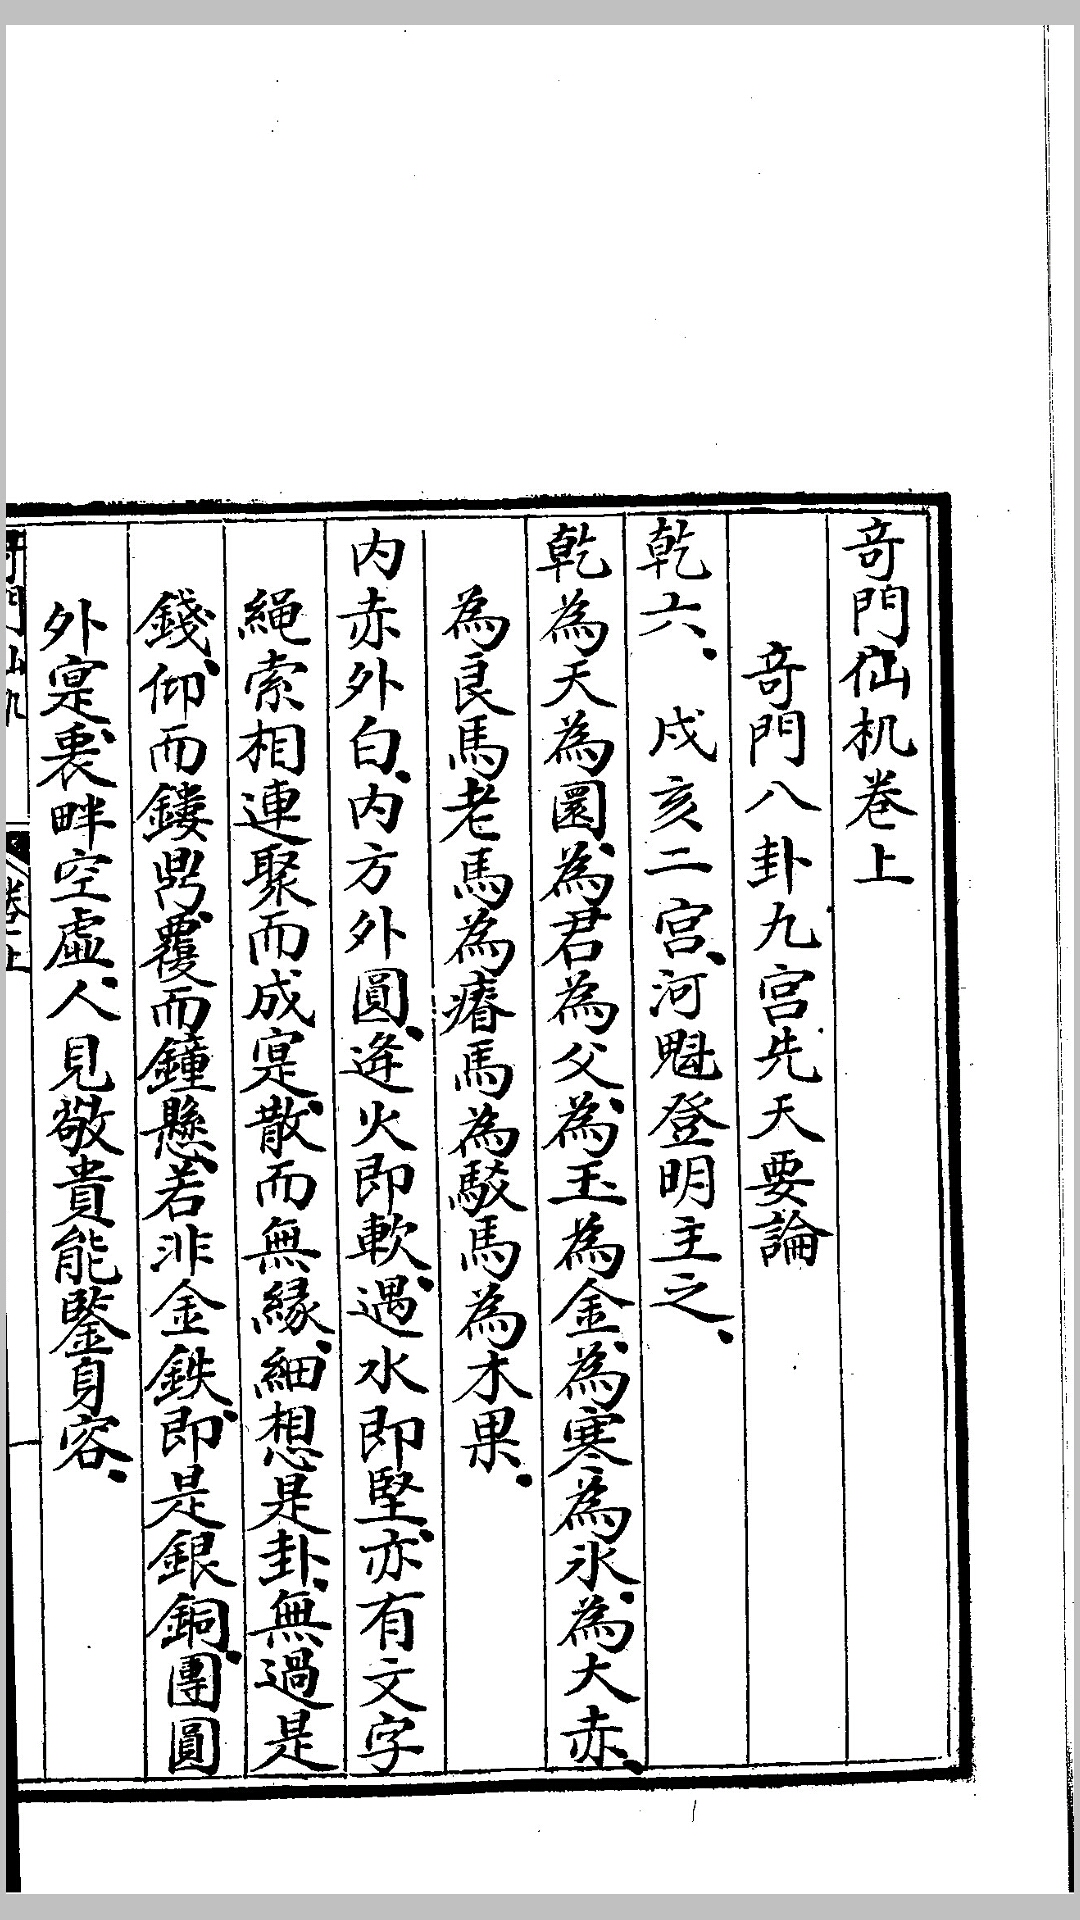 奇門仙机卷上
奇門八卦九宮先天要論
乾六、戌亥二宮、河魁登明主之、
乾為天為圜、為君為父、為玉為金、為寒為氷、為大赤、
為良馬老馬為瘠馬為駁馬為木果、
内赤外白、内方外圓、逢火即軟、遇水即堅、亦有文字
繩索相連聚而成寔、散而無緣、細想是卦、無過是
錢、仰而鏤鼎、覆而鐘懸、若非金鉄、即是銀銅、團圓
外寔、裹畔空虛、人見敬貴能鑒身容、
奇門仙机 卷上 一